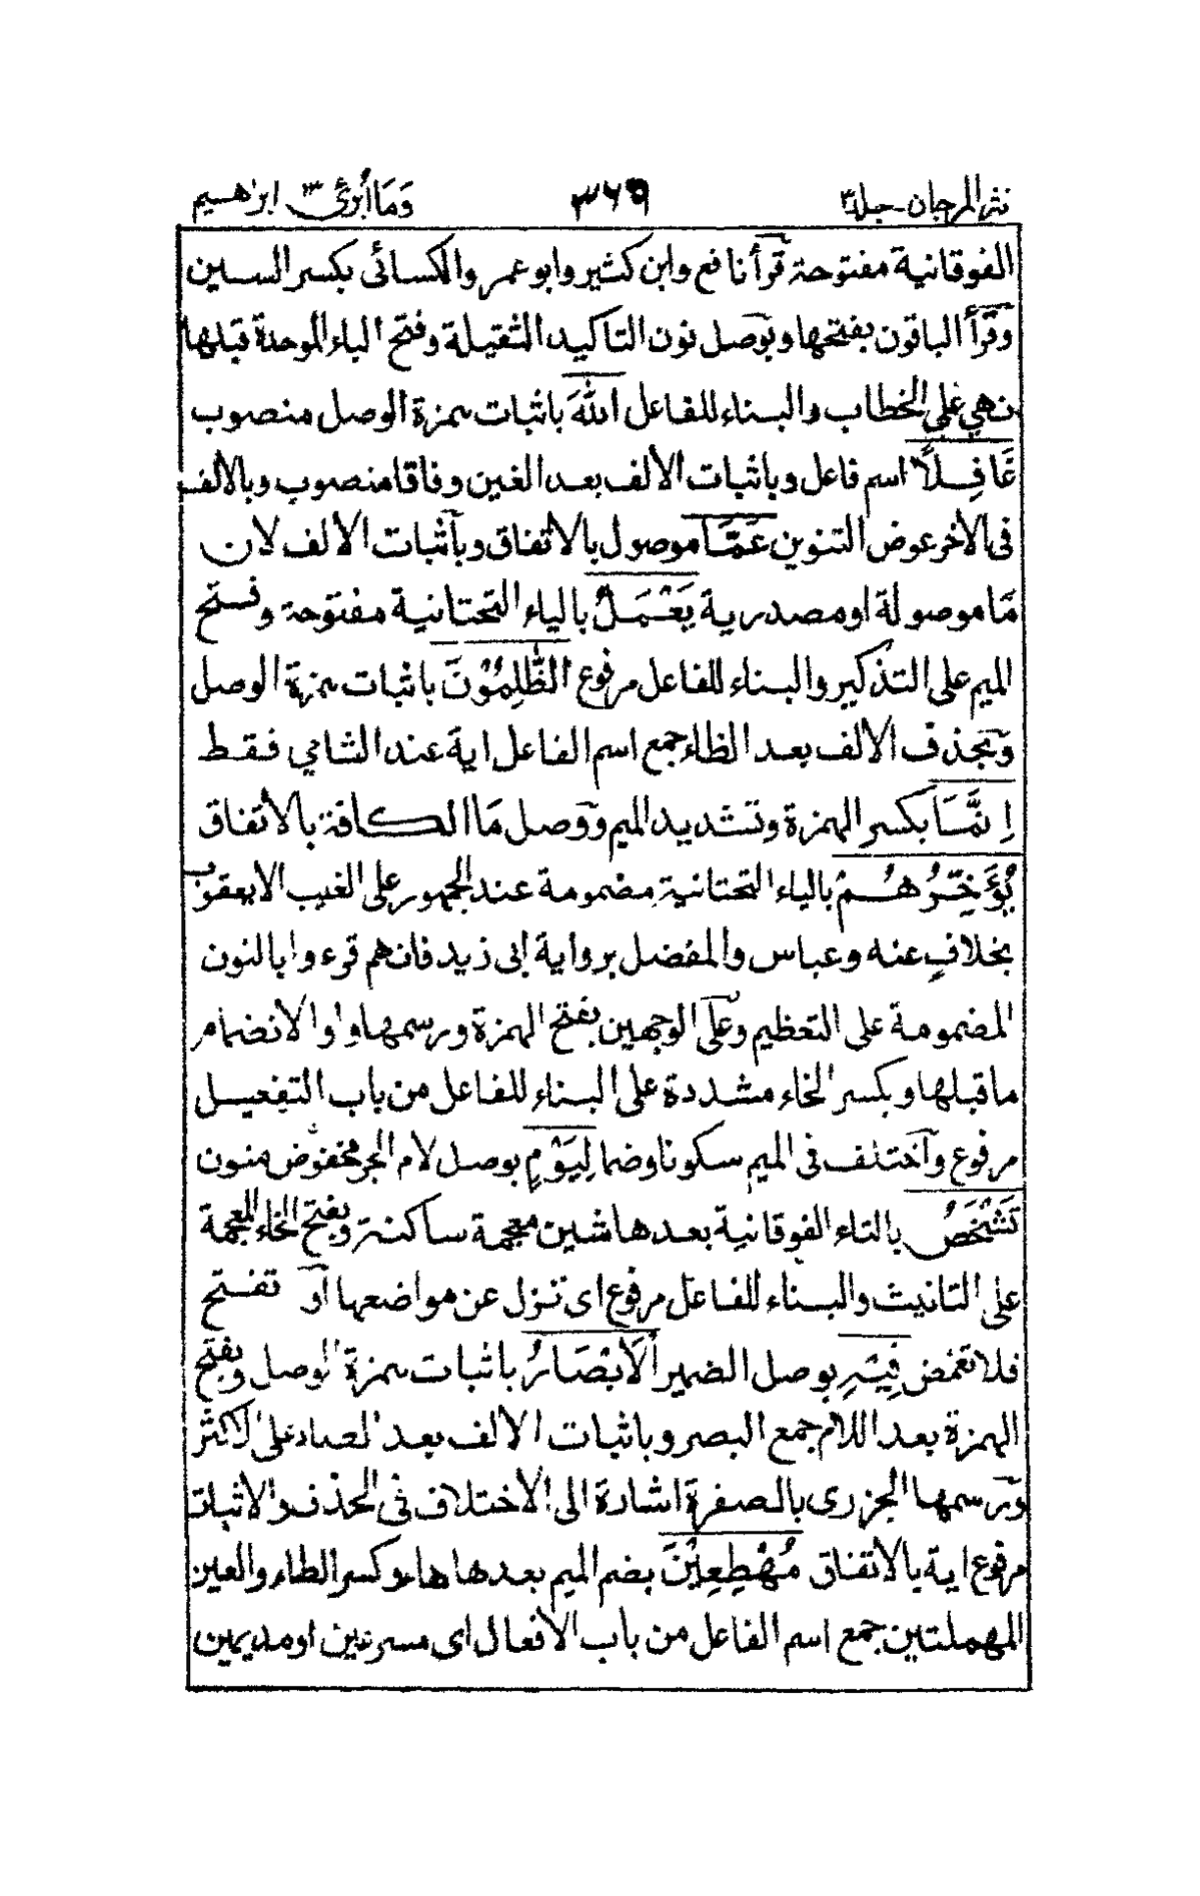 نثر المرجان جلد ٣ ٣٦٩ وَمَا أُبَرِّئُ ١٣ ابراهيم
الفوقانية مفتوحة قرأ نافع وابن كثير وابو عمر والكسائى بكسر السين
وقرأ الباقون بفتحها وبوصل نون التاكيد الثقيلة وفتح الباء الموحدة قبلها
نهي على الخطاب والبناء للفاعل اللهَ باثبات همزة الوصل منصوب
غَافِلاً اسم فاعل وباثبات الألف بعد الغين وفاقا منصوب وبالالف
فى الاخر عوض التنوين عَمَّا موصول بالاتفاق وباثبات الالف لان
مَا موصولة او مصدرية يَعْمَلُ بالياء التحتانية مفتوحة وفتح
الميم على التذكير والبناء للفاعل مرفوع الظّٰلِمُوْنَ باثبات همزة الوصل
وبحذف الالف بعد الظاء جمع اسم الفاعل اية عند الشامي فقط
اِنَّمَا بكسر الهمزة وتشديد الميم ووصل مَا الكافة بالأتفاق
يُؤَخِّرُهُمْ بالياء التحتانية مضمومة عند الجمهور على الغيب الا يعقوب
بخلافٍ عنه وعباس والمفضل برواية ابى زيد فانهم قرءوا بالنون
المضمومة على التعظيم وعلى الوجهين بفتح الهمزة ورسمها واوا لانضمام
ما قبلها وبكسر الخاء مشددة على البناء للفاعل من باب التفعيل
مرفوع واختلف فى الميم سكونا وضما لِيَوْمٍ بوصل لام الجر مخفوض منون
تَشْخَصُ بالتاء الفوقانية بعدها شين معجمة ساكنة وبفتح الخاء المعجمة
على التانيث والبناء للفاعل مرفوع اى تنزل عن مواضعها او تفتح
فلا تغمض فِيْهِ بوصل الضمير الْاَبْصَارُ باثبات همزة الوصل وبفتح
الهمزة بعد اللام جمع البصر وباثبات الألف بعد الصاد على الاكثر
ورسمها الجزرى بالصفرة اشارة الى الاختلاف فى الحذف والاثبات
مرفوع اية بالاتفاق مُهْطِعِيْنَ بضم الميم بعدها هاء وكسر الطاء والعين
المهملتين جمع اسم الفاعل من باب الافعال اى مسرعين او مديمين